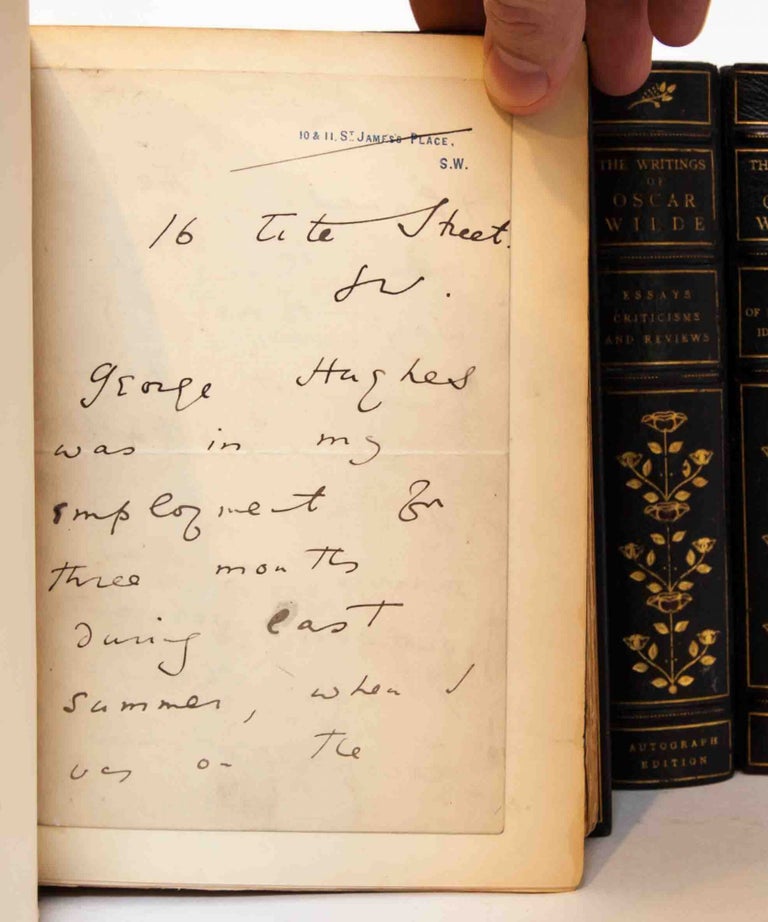 10 & 11, ST JAMES'S PLACE,
S.W.
16 Tite Street.
SW.
George Hughes
was in my
employment for
three months
during last
summer, when I
was on the
THE WRITINGS
OF
OSCAR
WILDE
ESSAYS
CRITICISMS
AND REVIEWS
AUTOGRAPH
EDITION